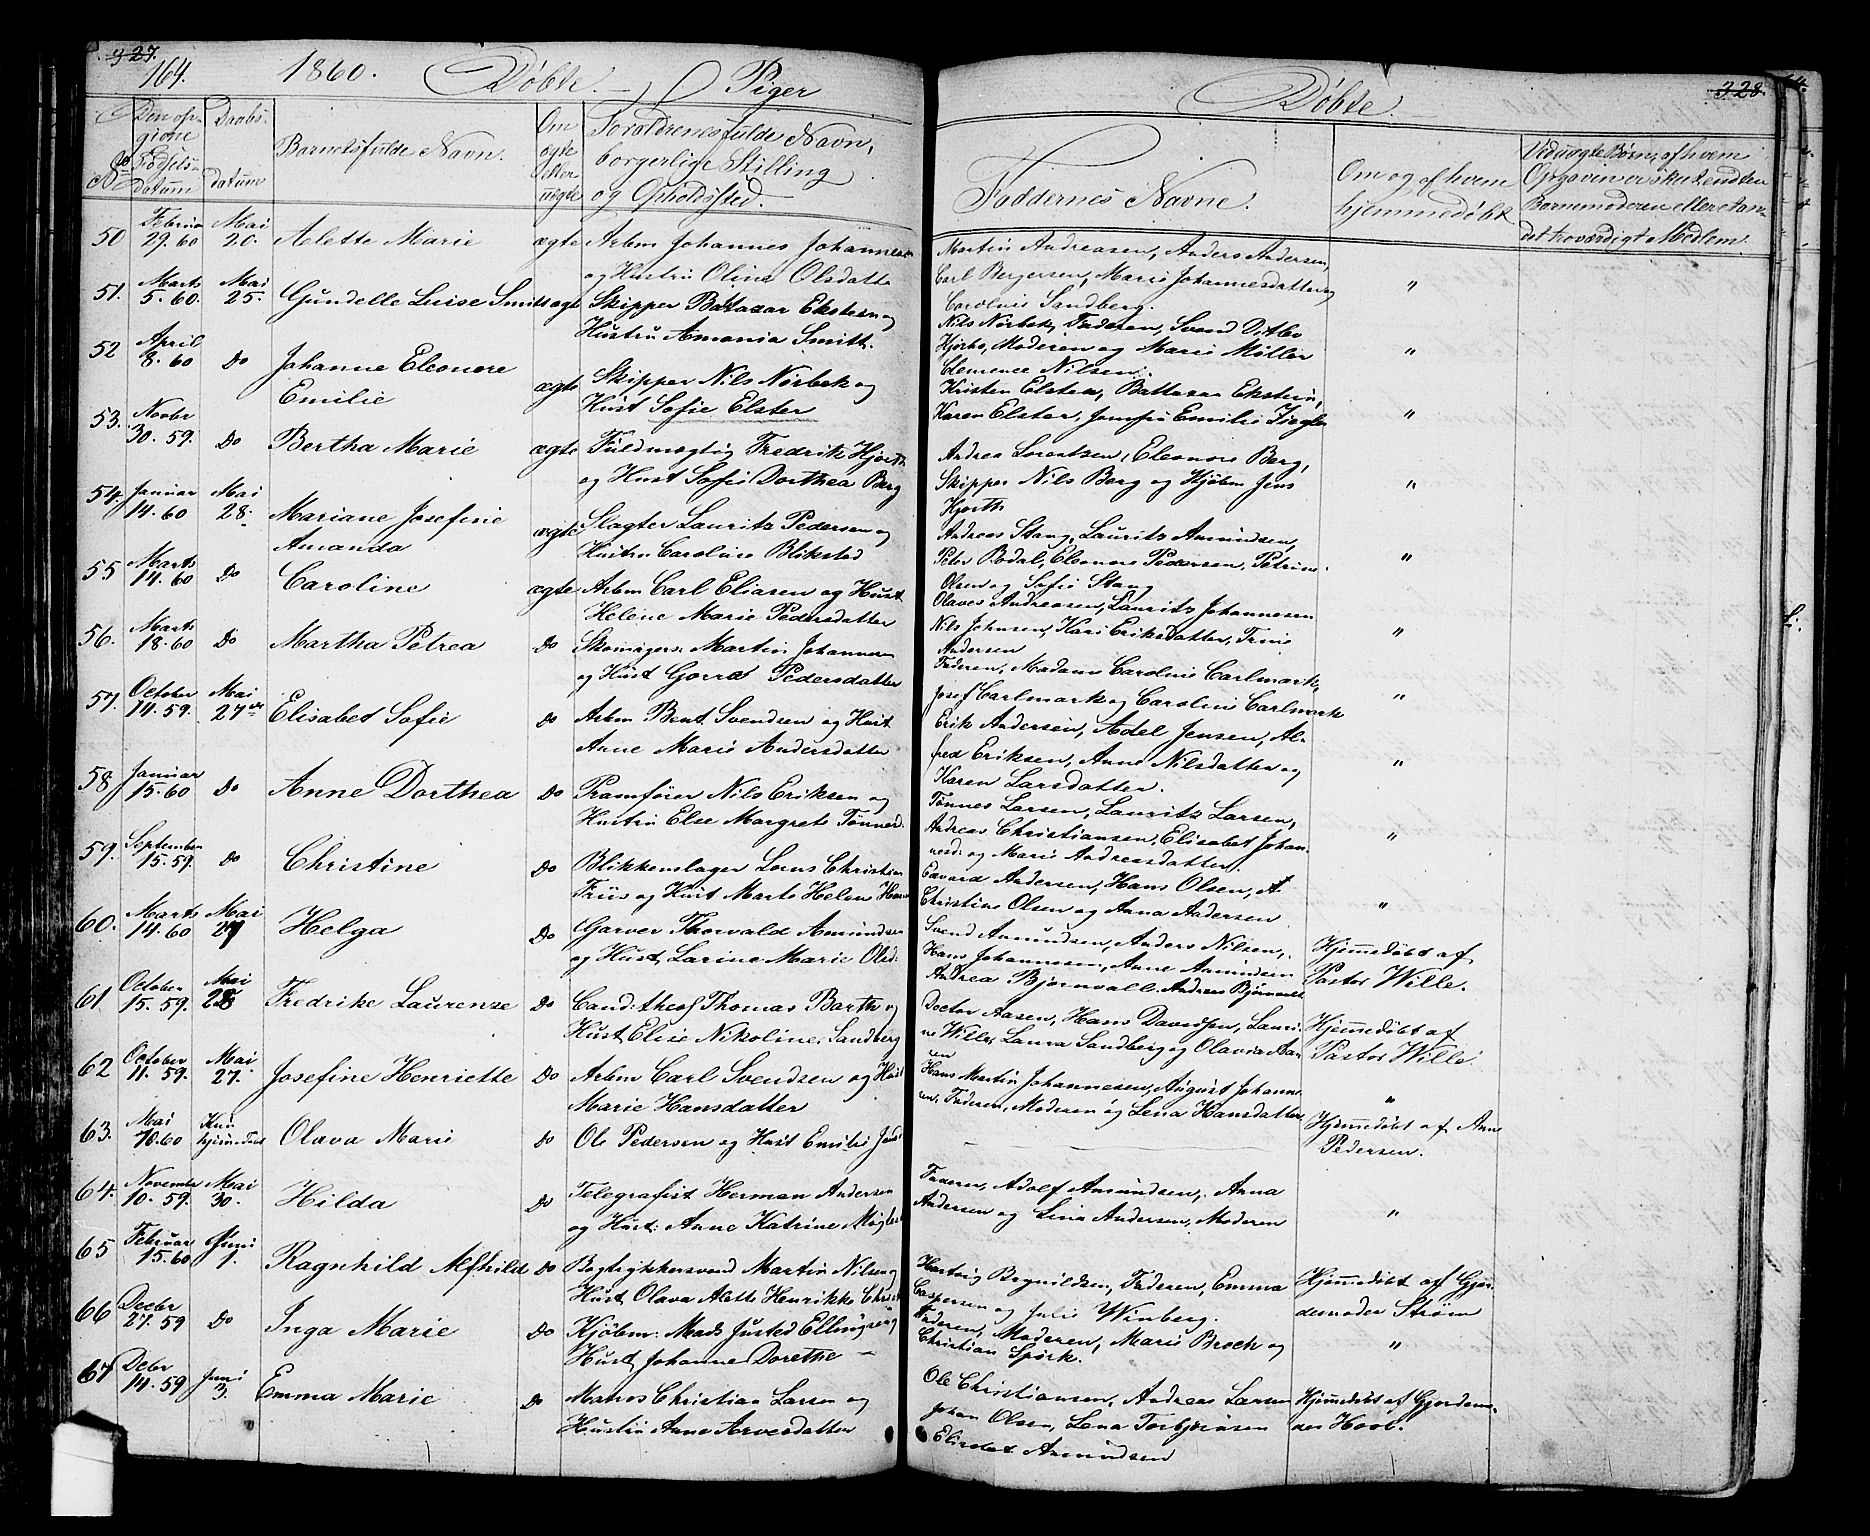 327.
164. 1860. Døbte. Piger
No
Den op-
givne
Fødsels-
datum
Daabs-
datum
Barnets fulde Navn.
Om
ægte
eller
uægte
Forældrenes fulde Navn,
borgerlige Stilling
og Opholdsted.
50 Februar 29. 60 Mai 20. Aletta Marie ægte Arbm Johannes Johannesen
og Hustru Olina Olsdatter
51. Marts 5. 60. Mai 25. Gundelle Luise Smitt ægte Skipper Baltazar Ekstein og
Hustru Amania Smitt.
52 April 8. 60 Do Johanne Eleonore
Emilie ægte Skipper Nils Nørbek og
Hust Sofie Elster
53. Novbr 30. 59. Do Bertha Marie ægte Fuldmægtig Fredrik Hjorth
og Hust Sofie Dorthea Berg
54. Januar 14. 60 Mai 28. Mariane Josefine
Amanda ægte Slagter Lauritz Pedersen og
Hustru Caroline Blikstad
55 Marts 14. 60 Do Caroline ægte Arbm Carl Eliasen og Hust
Helene Marie Pedersdatter
56. Marts 18. 60 Do Martha Petrea Do Skomagers. Martin Johannesen
og Hust Pedersdatter
57. October 14. 59. Mai 27 Elisabet Sofie Do Arbm Bent Svendsen og Hust
Anne Marie Andersdatter
58 Januar 15. 60 Do Anne Dorthea Do Pramfører Nils Eriksen og
Hustru Else Margrete Tønnesd.
59. September 15. 59. Do Christine Do Blikkenslager Lens Christian
Friis og Hust Marte Helene
60. Marts 14. 60 Mai 27 Helga Do Garver Thorvald Amundsen
og Hust, Larine Marie Olsd:
61. October 15. 59. Mai 28 Fredrike Laurenze Do Cand: theol Thomas Barth og
Hust, Elise Nikoline Sandberg
62 October 11. 59. Mai 27. Josefine Henriette Do Arbm Carl Svendsen og Hust
Marie Hansdatter
63. Mai 10. 60 Kun hjemmedøbt Olava Marie Do Ole Pedersen og Hust Emilie
64. November 10. 59. Mai 30. Hilda Do Telegrafist Herman Andersen
og Hust: Anne Katrine
65 Februar 15. 60 Juni 1. Ragnhild Alfhild Do Bogtrykkersvend Martin Nilsen og
Hust, Olava Alette Henrikke
66 Decbr 27. 59 Do Inga Marie Do Kjøbm: Mads Justed Ellingsen og
Hust, Johanne Dorethe —
67 Decbr 14. 59 Juni 3. Emma Marie Do Matros Christian Larsen og
Hustru Anne Arvesdatter
328.
Døbte.
Faddernes Navne.
Om og af hvem
hjemmedøbt
Ved uægte Børn, af hvem
Opgaven er sket, enten
Barnemoderen eller An-
det troværdigt Medlem.
Martin Andreasen, Anders Andersen,
Carl Bergersen, Marie Johannesdatter og
Caroline Sandberg. "
Nils Nørbek, Faderen, Svend Ditlev
Hjorth, Moderen og Marie Møller "
Clemence Nilsen.
Kristen Elster, Baltazar Ekstein,
Karen Elster, Jomfru Emilie Ziegler "
Andrea Lorentzen, Eleonore Berg,
Skipper Nils Berg og Kjøbm Jens
Hjorth "
Andreas Stang, Lauritz Amundsen,
Peter Rodal, Eleonore Pedersen, Petrine
Olsen og Sofie Stang "
Olaves Andreasen, Lauritz Johannesen
Nils Johnsen, Kari Eriksdatter, Trine
Andersen "
Faderen, Madame Caroline Carlmark,
Josef Carlmark og Caroline Carlmark "
Erik Andersen, Adel Jensen, Al-
fred Eriksen, Anne Nilsdatter og
Karen Larsdatter. "
Tønnes Larsen, Lauritz Larsen,
Andreas Christiansen, Elisabet Johan-
nesd: og Marie Andreasdatter. "
Edvard Andersen, Hans Olsen, A
Christine Olsen og Anna Andersen "
Svend Amundsen, Anders Nilsen,
Hans Johannesen, Anne Aamundsen
Andrea Bjørnvall. Andreas Bjørnvall Hjemmedøbt af
Pastor Wille.
Doctor Aasen, Hans Davidsen, Lauri-
ne Wille, Laura Sandberg og Olavia Aa-
sen Hjemmedøbt af
Pastor Wille.
Hans Martin Johannesen, August Johanne-
sen, Faderen, Moderen og Lena Hansdatter "
— Hjemmedøbt af Anne
Pedersen.
Faderen, Adolf Amundsen, Anna
Andersen og Lina Andersen, Moderen "
Hartvig Brynildsen, Faderen, Emma
Caspersen og Julie Winberg. Hjemmedøbt af Gjor-
demoder Strøm
Faderen, Moderen, Marie Broch og
Christian Spørk. "
Ole Christiansen, Andreas Larsen
Johan Olsen, Lena Torbjørnsen
Elisabet Aamundsen Hjemmedøbt af Gjordemo-
der Hoel.